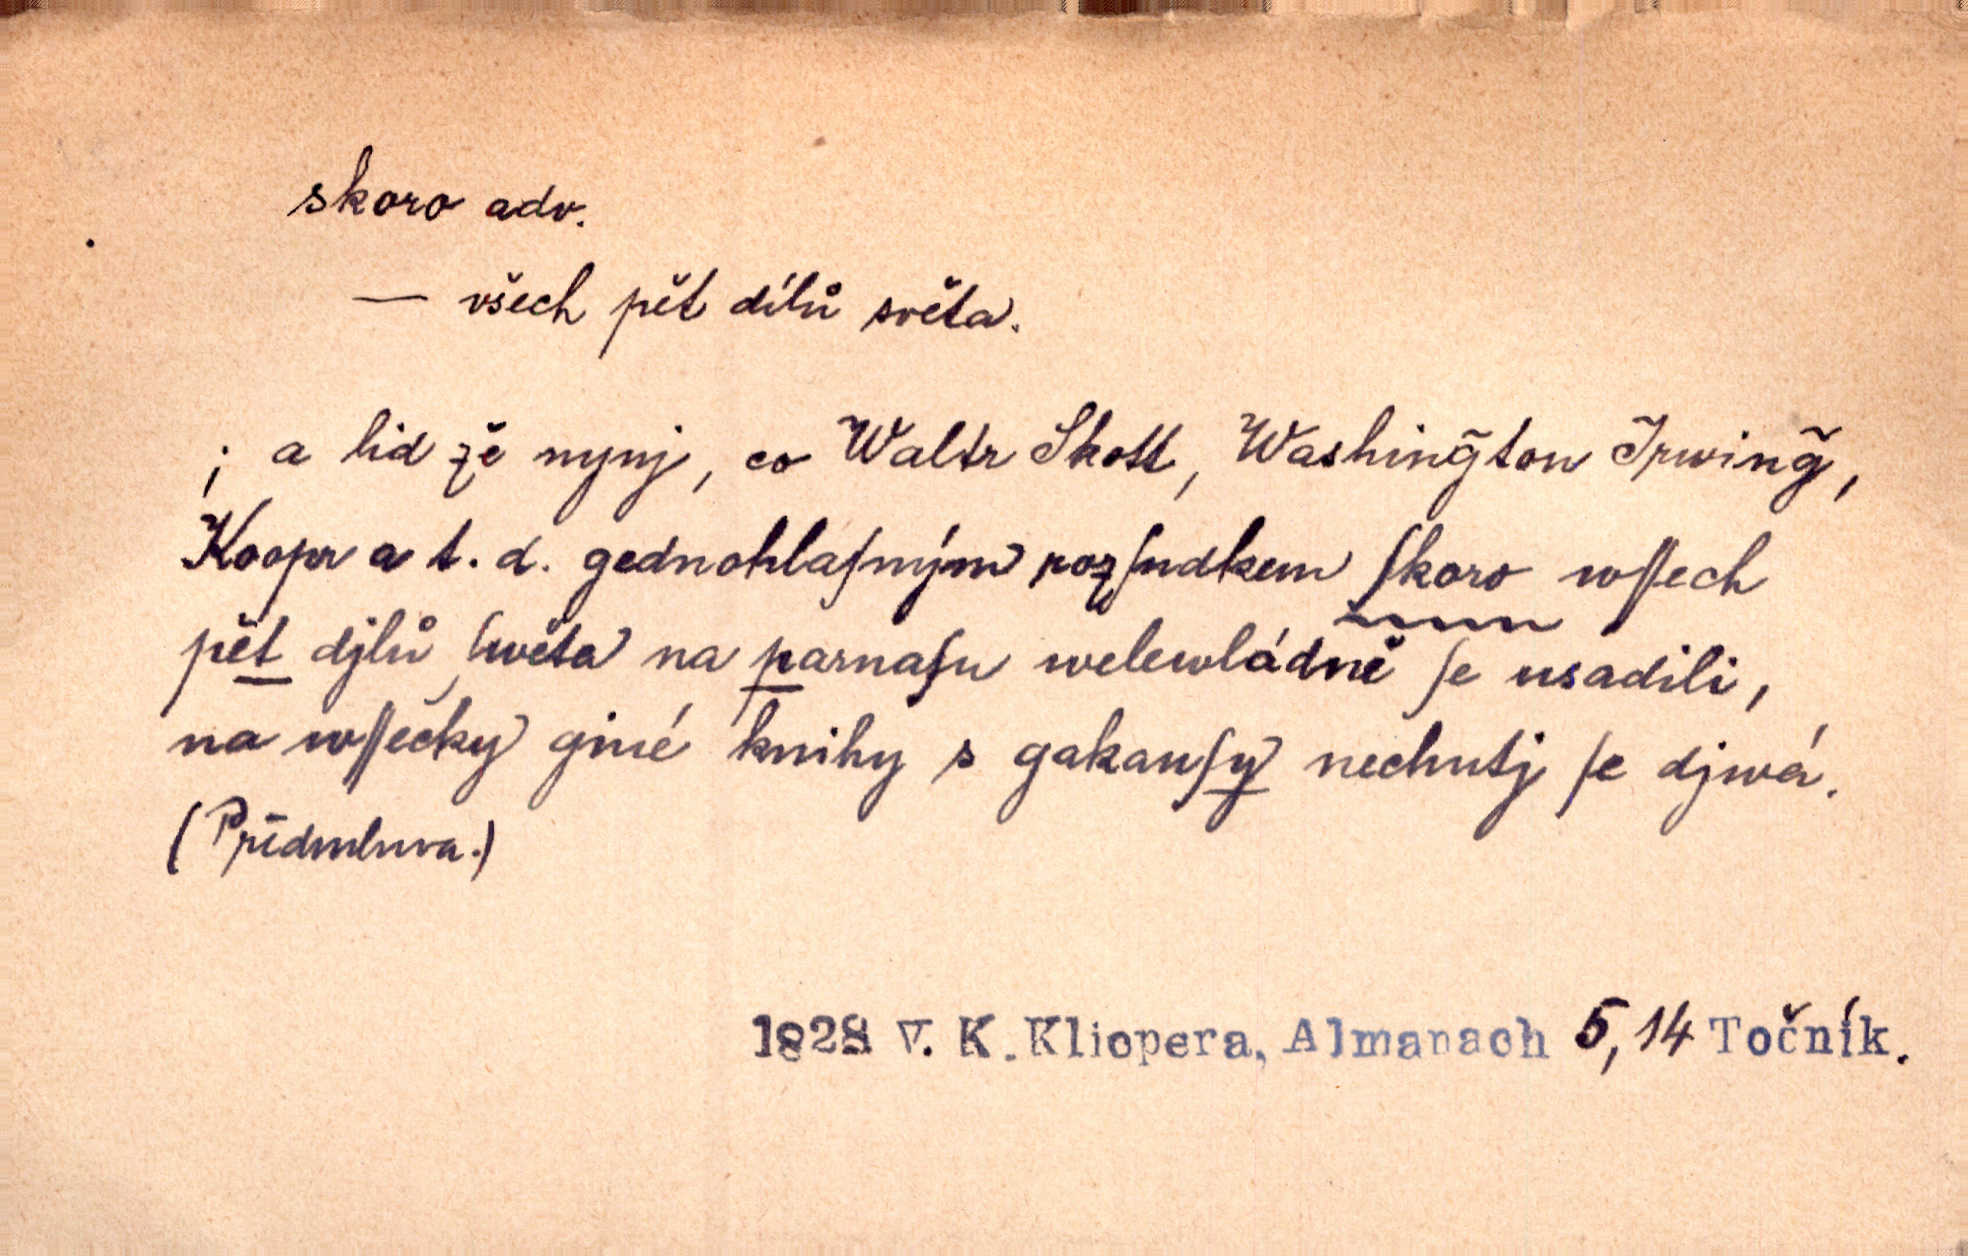 skoro adv.
— všech pět dílů světa.
; a lid že nynj, co Waltr Skott, Washing̃ton Irwing̃,
Koopr a t. d. gednohlaſným rozſudkem ſkoro wſſech
pět djlů ſwěta na parnaſu welewládně ſe usadili,
na wſſečky giné knihy s gakauſy nechutj ſe djwá.
(Přídmluva.)
1828 V. K. Kliopera, Almanach 5, 14 Točník.